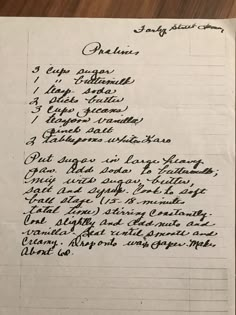 Farley Street
Pralines
3 cups sugar
1 " buttermilk
1 teasp. soda
2 sticks butter
3 cups pecans
1 teaspoon vanilla
pinch salt
2 tablespoons white Karo
Put sugar in large heavy
pan. Add soda to buttermilk;
mix with sugar, butter,
salt and syrup. Cook to soft
ball stage (15-18 minutes
total time) stiring constantly.
Cool slightly and add nuts and
vanilla. Beat until smooth and
creamy. Drop onto wax paper. Makes
about 60.